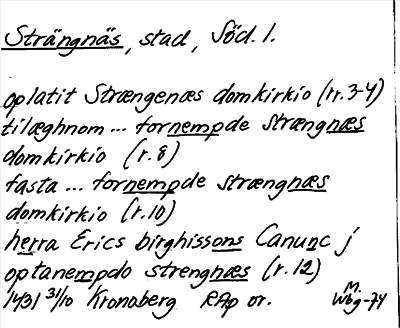 Strängnäs, stad, Söd. l.
oplatit Strængenæs domkirkio (rr.3-4)
tilæghnom ... fornempde Strængnæs
domkirkio (r.8)
fasta ... fornempde Strængnæs
domkirkio (r.10)
herra Erics birghissons Canunc j
optanempdo strengnæs (r.12)
1431 31/10 Kronoberg RAp or.
M.
Wbg-74